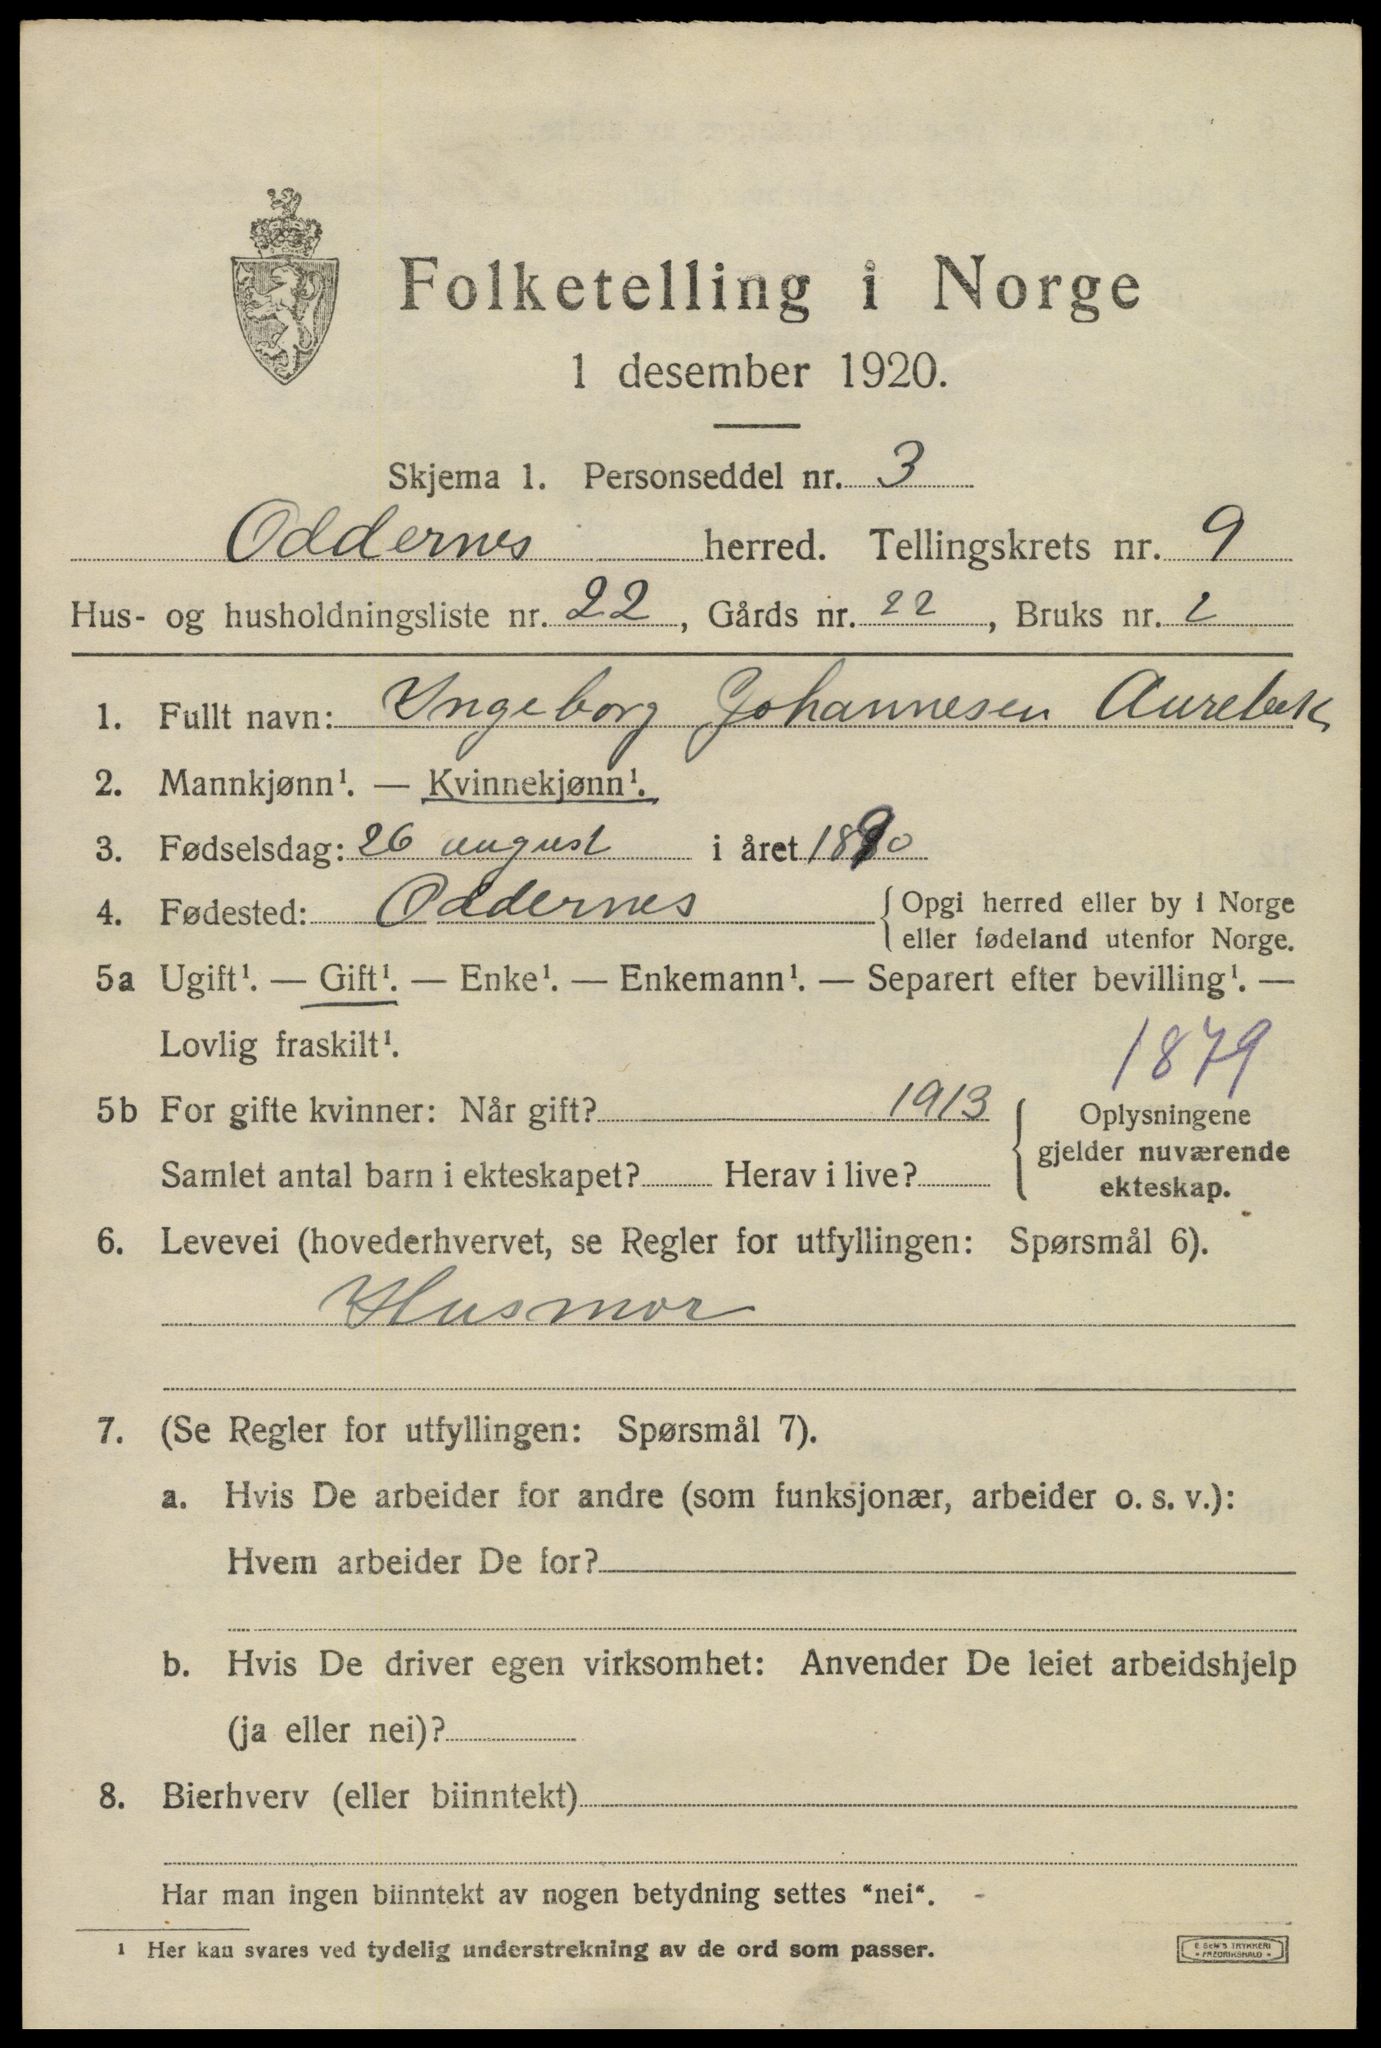 Folketelling i Norge
1 desember 1920.
Skjema 1. Personseddel nr. 3
Oddernes herred. Tellingskrets nr. 9
Hus- og husholdningsliste nr. 22, Gårds nr. 22, Bruks nr. 2
1. Fullt navn: Ingeborg Johannesen Aurebek
2. Mannkjønn¹. — Kvinnekjønn¹.
3. Fødselsdag: 26 august i året 1890
4. Fødested: Oddernes { Opgi herred eller by i Norge
eller fødeland utenfor Norge.
5a Ugift¹. — Gift¹. — Enke¹. — Enkemann¹. — Separert efter bevilling¹. —
Lovlig fraskilt¹.
1879
5b For gifte kvinner: Når gift? 1913
Samlet antal barn i ekteskapet? Herav i live?
{ Oplysningene
gjelder nuværende
ekteskap.
6. Levevei (hovederhvervet, se Regler for utfyllingen: Spørsmål 6).
Husmor
7. (Se Regler for utfyllingen: Spørsmål 7).
a. Hvis De arbeider for andre (som funksjonær, arbeider o. s. v.):
Hvem arbeider De for?
b. Hvis De driver egen virksomhet: Anvender De leiet arbeidshjelp
(ja eller nei)?
8. Bierhverv (eller biinntekt)
Har man ingen biinntekt av nogen betydning settes "nei".
¹ Her kan svares ved tydelig understrekning av de ord som passer.
E. SEM'S TRYKKERI
• FREDRIKSHALD •